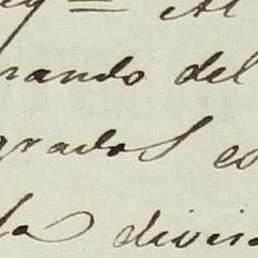 Al
rando del
grados es
la divis